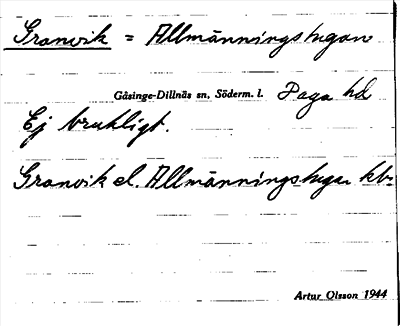 Granvik = Allmänningstugan
Gåsinge-Dillnäs sn, Söderm. l. Daga hd
Ej brukligt.
Granvik el. Allmänningstugan kbr
Artur Olsson 1944